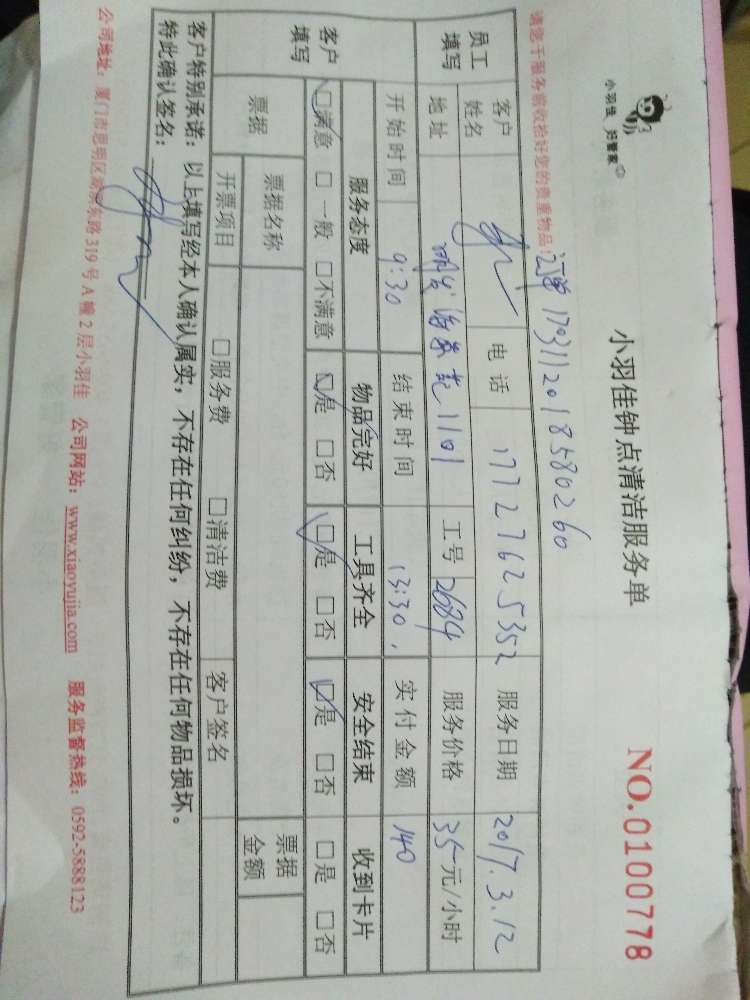 小羽佳 好管家
小羽佳钟点清洁服务单
NO.0100778
请您于服务前收拾好您的贵重物品!
订单 1703112018580260
员工填写
客户姓名
电话 17727625352
服务日期 2017.3.12
地址 1101
工号 2684
服务价格 35元/小时
开始时间 9:30
结束时间 13:30
实付金额 140
客户填写
服务态度 物品完好 工具齐全 安全结束 收到卡片
□满意 □一般 □不满意 □是 □否 □是 □否 □是 □否 □是 □否
票据
票据名称
票据金额
开票项目 □服务费 □清洁费 客户签名
客户特别承诺:以上填写经本人确认属实,不存在任何纠纷,不存在任何物品损坏。
特此确认签名:
公司地址:厦门市思明区湖滨东路319号A幢2层小羽佳 公司网站:www.xiaoyujia.com 服务监督热线:0592-5888123